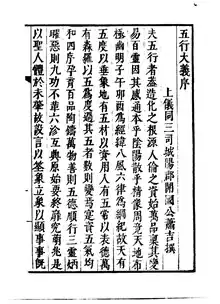 五行大義序
上儀同三司城陽郡開國公蕭吉撰
夫五行者蓋造化之根源人倫之資始萬品稟其變
易百靈因其感通本乎陰陽散乎精像周竟天地布
極幽明子午卯酉爲經緯八風六律爲綱紀故天有
五度以垂象地有五材以資用人有五常以表德萬
有森羅以五爲度過其五者數則變焉寔資五氣均
和四序孕育百品陶鑄萬物善則五德順行三靈炳
曜惡則九功不革六沴互興原始要終靡究萌兆是
以聖人體於未肇故設言以筌象立象以顯事事既